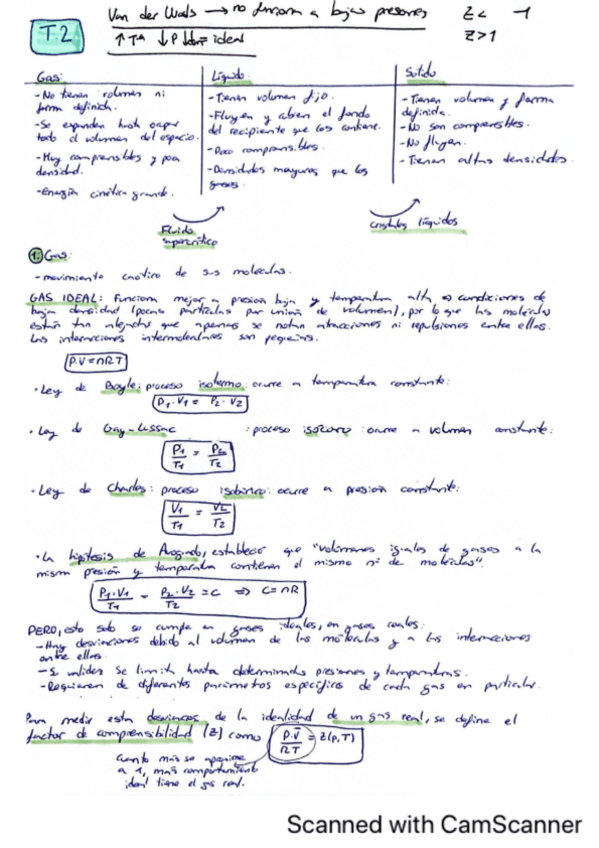 Van der Wals → no funciona a bajas presiones
Z< 1
T.2
↑Tª ↓P ideal
Z>1
Gas:
- No tienen volumen ni
forma definida.
- Se expanden hasta ocupar
todo el volumen del espacio.
- Muy compresibles y poca
densidad.
- energía cinética grande.
Líquido
- Tienen volumen fijo.
- Fluyen y cubren el fondo
del recipiente que los contiene.
- Poco compresibles.
- Densidades mayores que los
gases.
Sólido
- Tienen volumen y forma
definida.
- No son compresibles.
- No fluyen.
- Tienen altas densidades.
Fluido
supercrítico
cristales líquidos
1. Gas:
- movimiento caótico de sus moléculas.
GAS IDEAL: Funciona mejor a presión baja y temperatura alta ⇒ condiciones de
baja densidad (pocas partículas por unión de volumen), por lo que las moléculas
están tan alejadas que apenas se notan atracciones ni repulsiones entre ellas.
Las interacciones intermoleculares son pequeñas.
P·V=nRT
· Ley de Boyle: proceso isotermo: ocurre a temperatura constante:
P1·V1 = P2·V2
· Ley de Gay-Lussac : proceso isocoro: ocurre a volumen constante:
P1/T1 = P2/T2
· Ley de Charles: proceso isobárico: ocurre a presión constante:
V1/T1 = V2/T2
· La hipótesis de Avogadro, estableció que "volúmenes iguales de gases a la
misma presión y temperatura contienen el mismo nº de moléculas".
P1·V1/T1 = P2·V2/T2 = C ⇒ C=nR
PERO, esto solo se cumple en gases ideales, en gases reales:
- Hay desviaciones debido al volumen de las moléculas y a las interacciones
entre ellas.
- Su validez se limita hasta determinadas presiones y temperaturas.
- Requieren de diferentes parámetros específicos de cada gas en particular.
Para medir esta desviación de la idealidad de un gas real, se define el
factor de compresibilidad (Z) como P·V/nRT = Z(P,T)
Cuanto más se aproxime
a 1, más comportamiento
ideal tiene el gas real.
Scanned with CamScanner